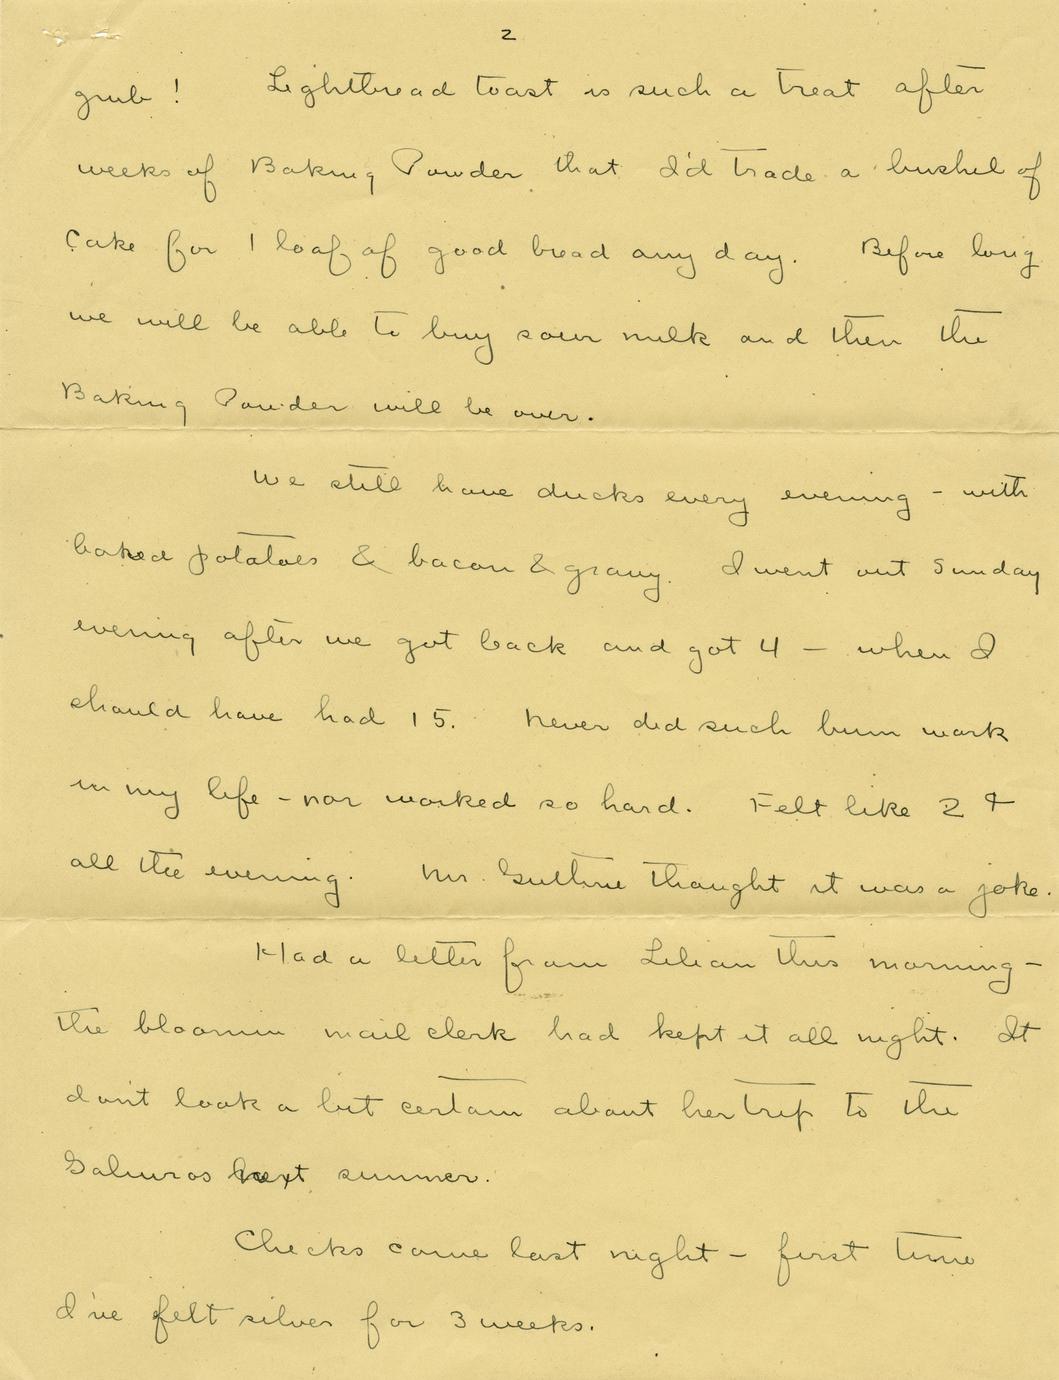 2
grub! Lightbread toast is such a treat after
weeks of Baking Powder that I'd trade a bushel of
Cake for 1 loaf of good bread any day. Before long
we will be able to buy sour milk and then the
Baking Powder will be over.
We still have ducks every evening - with
baked potatoes & bacon & gravy. I went out Sunday
evening after we got back and got 4 - when I
should have had 15. Never did such bum work
in my life - nor worked so hard. Felt like 2 ¢
all the evening. Mr. Guthrie thought it was a joke.
Had a letter from Lilian this morning -
the bloomin mail clerk had kept it all night. It
don't look a bit certain about her trip to the
Galiuros next summer.
Checks came last night - first time
I've felt silver for 3 weeks.